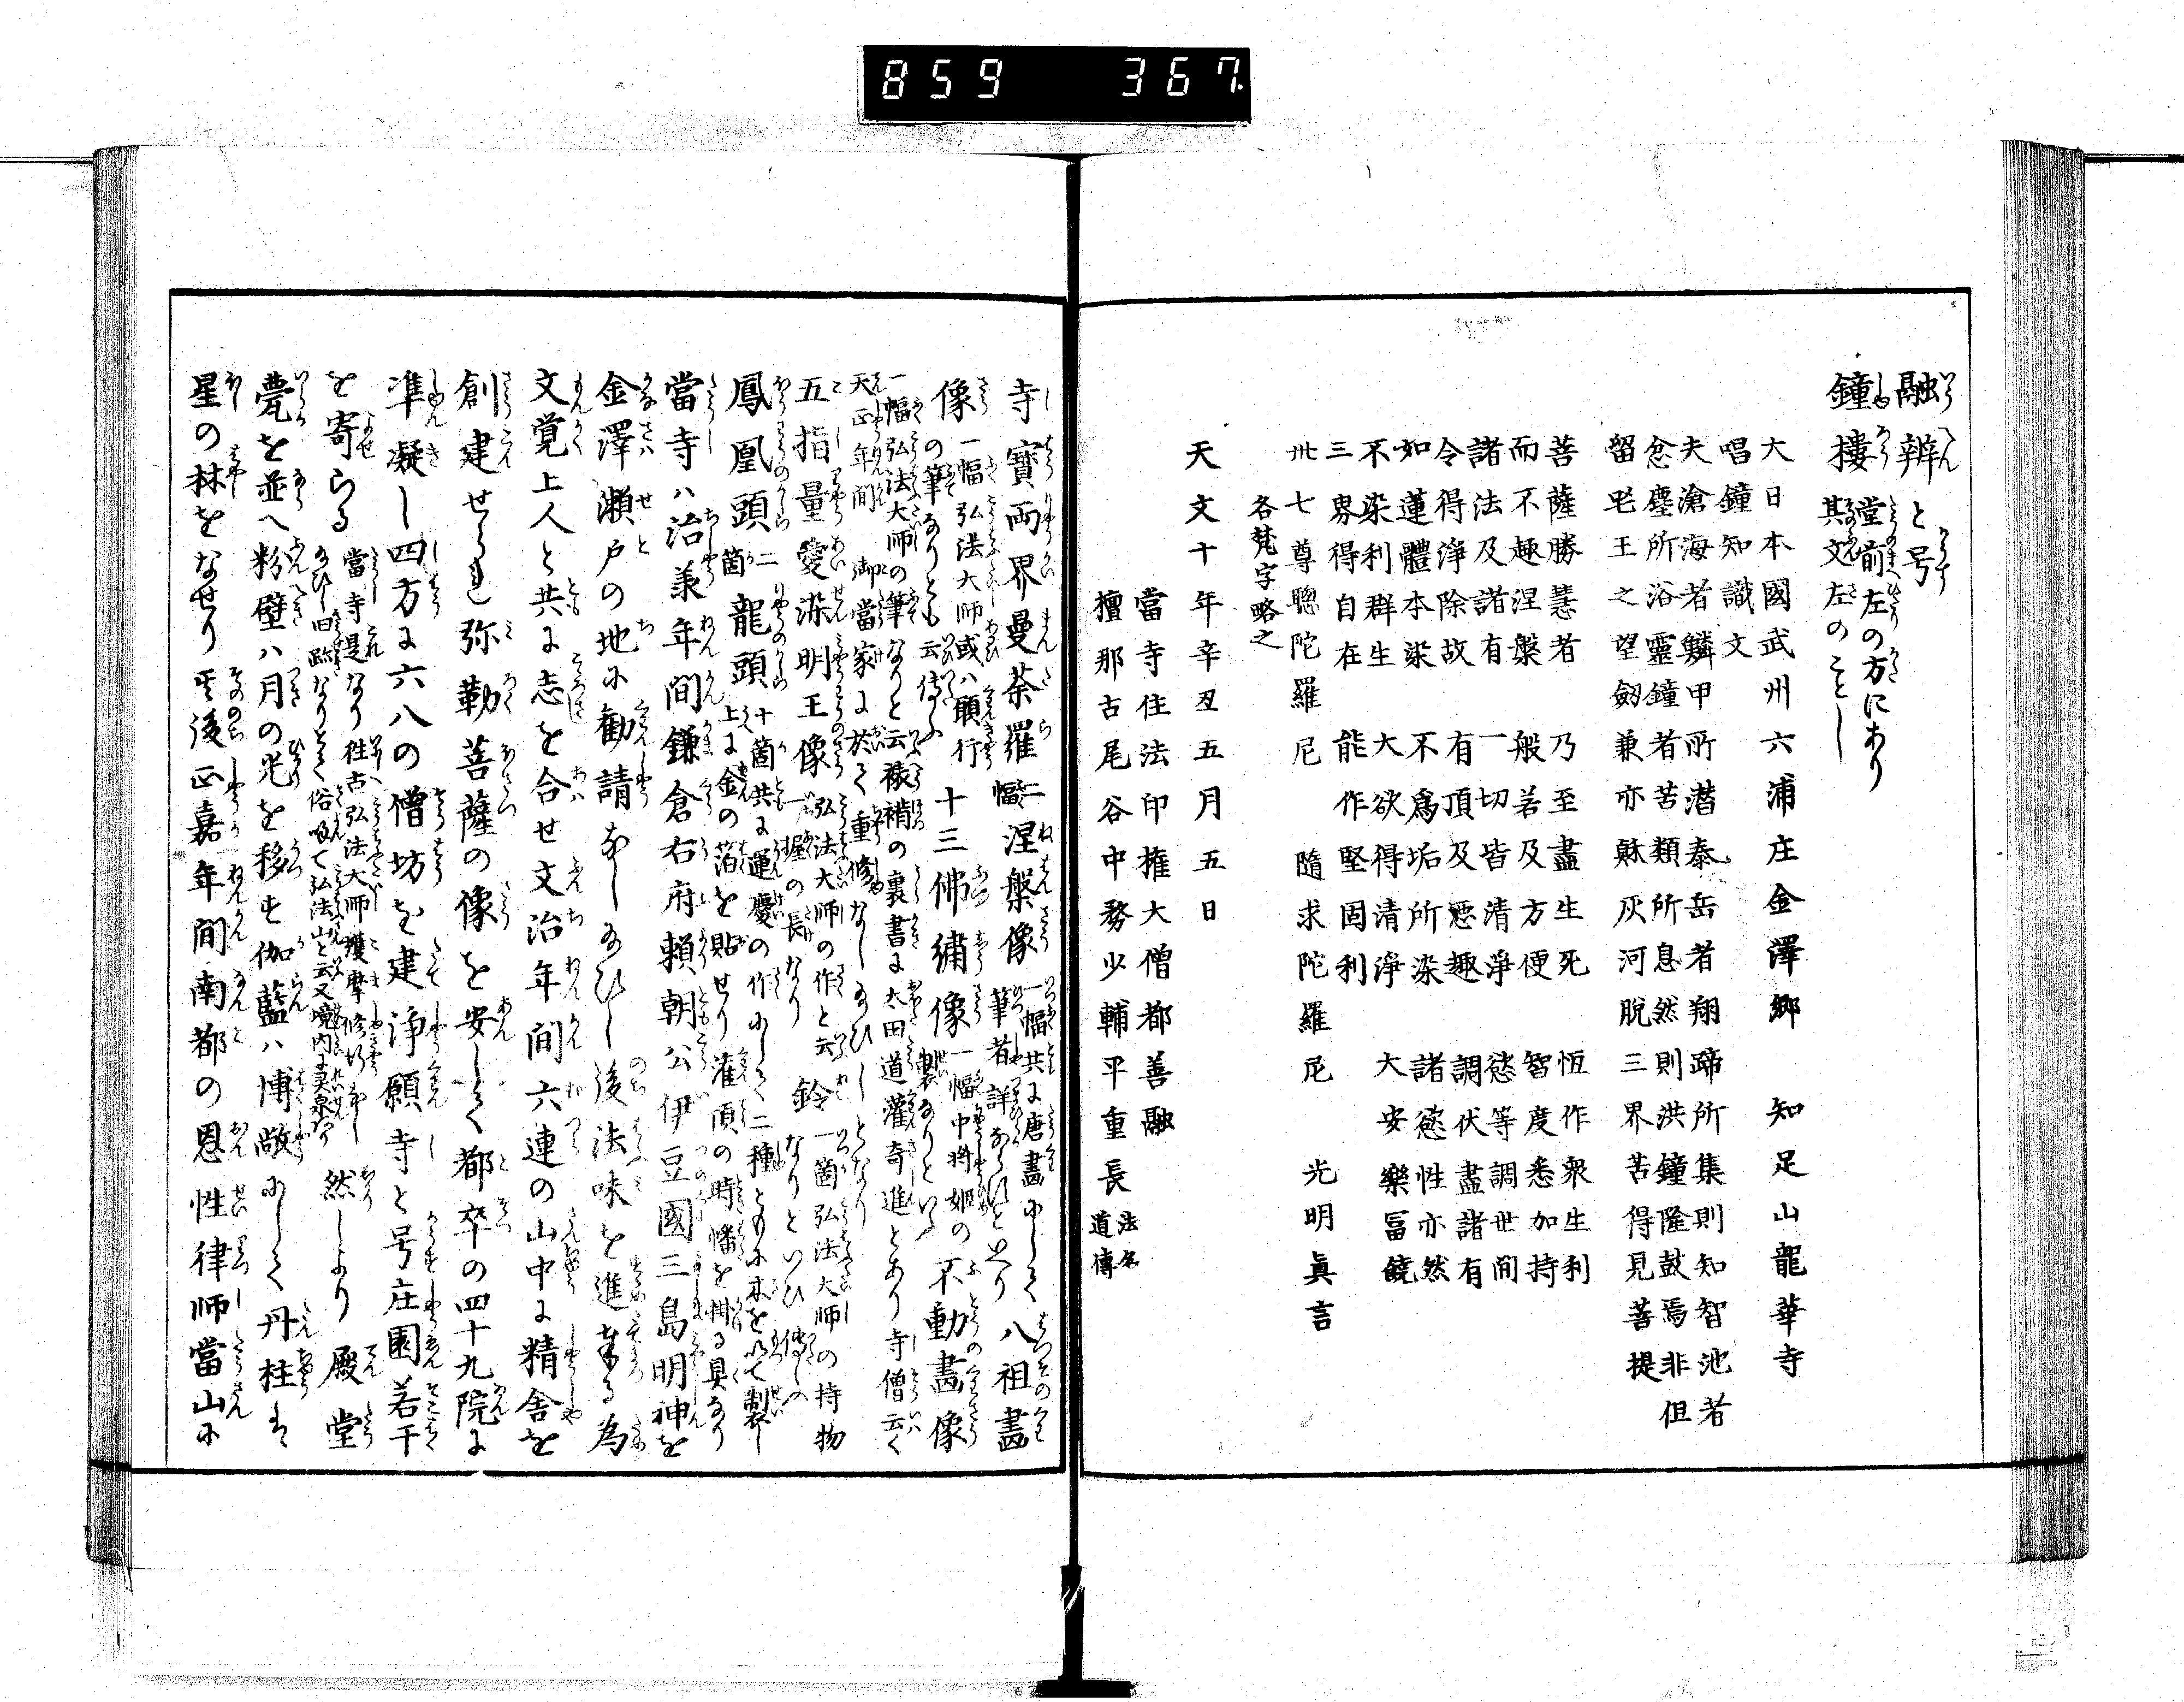 859 367
融辨と号
鐘樓 堂前左の方にあり
其文左のことし
大日本國武州六浦庄金澤郷 知足山龍華寺
唱鐘知識文
夫滄海者鱗甲所潜泰岳者翔蹄所集則知智池者
忿塵所浴靈鐘者苦類所息然則洪鐘隆鼓焉非但
留毛王之望劔兼亦賕灰河脱三界苦得見菩提
菩薩勝慧者 乃至盡生死 恆作衆生利
而不趣涅槃 般若及方便 智度悉加持
諸法及諸有 一切皆清淨 慾等調世間
令得淨除故 有頂及惡趣 調伏盡諸有
如蓮體本染 不爲垢所染 諸慾性亦然
不染利群生 大欲得清淨 大安樂冨饒
三界得自在 能作堅固利
卅七尊聰陀羅尼 隨求陀羅尼 光明眞言
各梵字略之
天文十年辛丑五月五日
當寺住法印権大僧都善融
檀那古尾谷中務少輔平重長 法名道傳
寺寳両界曼荼羅 二幅 涅槃像 一幅共に唐畫にして筆者詳ならすと也 八祖畫
像 一幅弘法大師或ハ願行の筆なりとも云傳ふ 十三佛繍像 一幅中将姫の製なりといふ 不動畫像
一幅弘法大師の筆なりと云裱補の裏書に太田道灌寄進とあり寺僧云く
天正年間御當家に於て重修なし給ひしとなり
五指量愛染明王像 弘法大師の作と云一握の長なり 鈴 一箇弘法大師の持物なりといひ傳ふ
鳳凰頭 二箇 龍頭 十箇共に運慶の作にして二種とも木を以て製し上に金の箔を貼せり灌頂の時幡を掛る具なり
當寺ハ治承年間鎌倉右府頼朝公伊豆國三島明神を
金澤瀬戸の地に勧請なし給ひし後法味を進奉る為
文覚上人と共に志を合せ文治年間六連の山中に精舎を
創建せられ弥勒菩薩の像を安して都卒の四十九院に
準凝し四方に六八の僧坊を建浄願寺と号庄園若干
を寄らる 當寺是なり往古弘法大師護摩修行なし給ひし旧跡なりとて俗呼て弘法山と云又境内に靈泉あり 然しより殿堂
甍を並へ粉壁ハ月の光を移せ伽藍ハ博敞にして丹柱は
星の林をなせり其後正嘉年間南都の恩性律師當山に